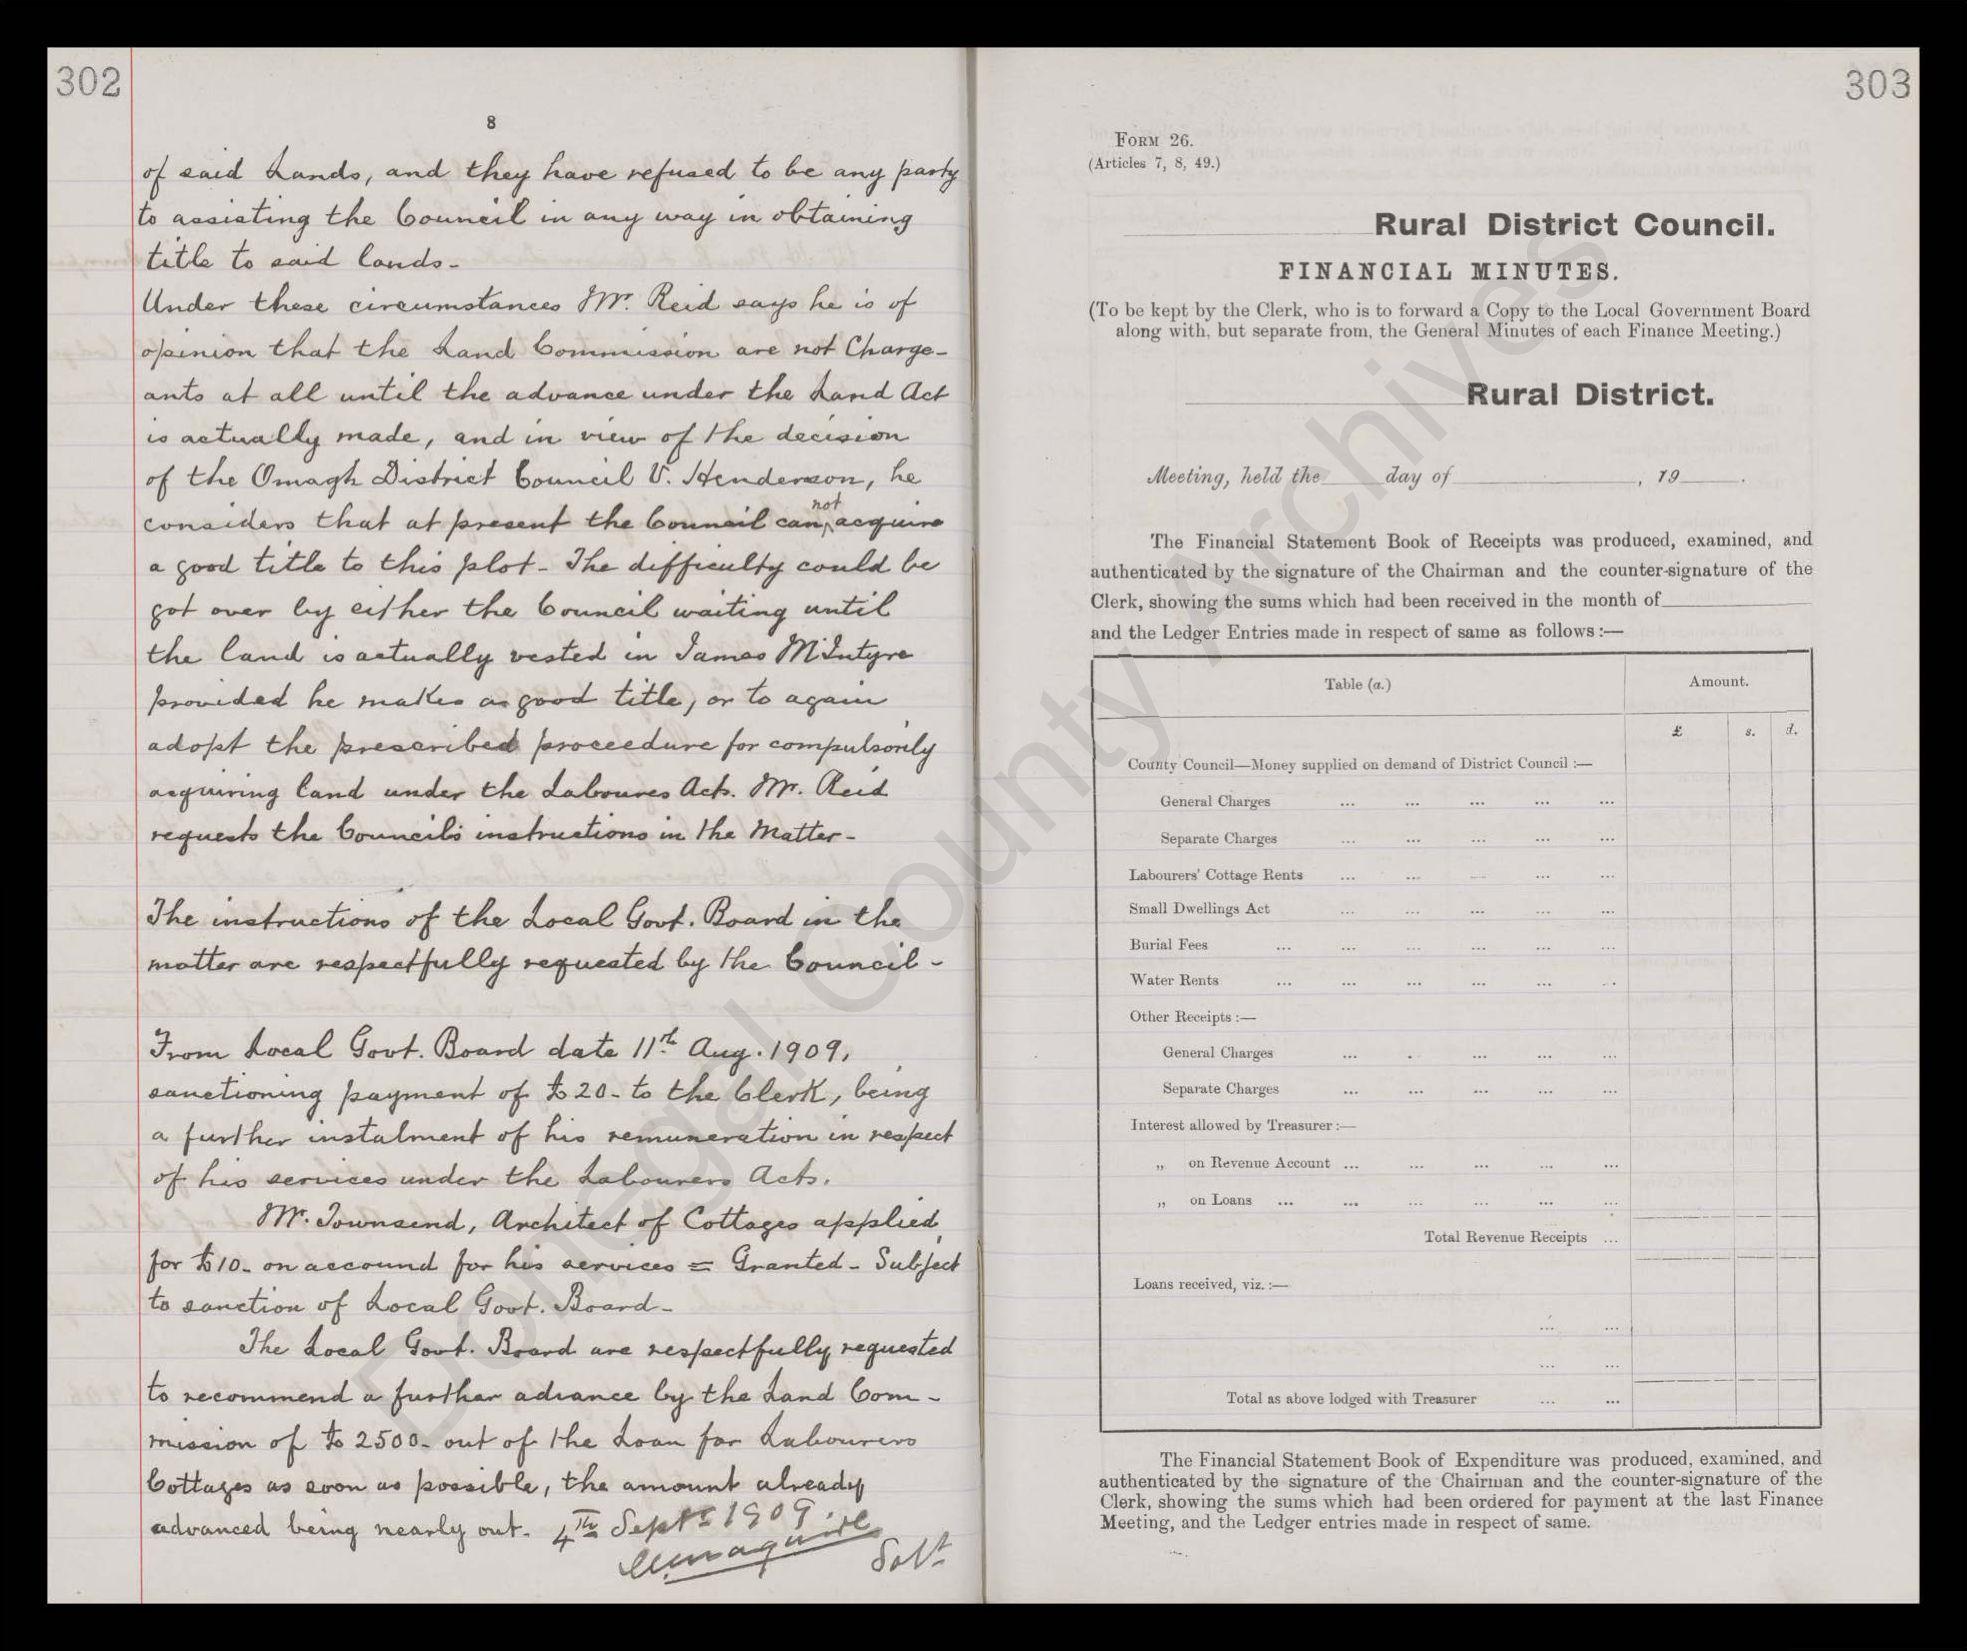 302
8
of said Lands, and they have refused to be any party
to assisting the Council in any way in obtaining
title to said lands-
Under these circumstances Mr. Reid says he is of
opinion that the Land Commission are not Charge-
ants at all until the advance under the Land Act
is actually made, and in view of the decision
of the Omagh District Council V. Henderson, he
considers that at present the Council can not acquire
a good title to this plot- The difficulty could be
got over by either the Council waiting until
the land is actually vested in James McIntyre
provided he makes a good title, or to again
adopt the prescribed proceedure for compulsorily
acquiring land under the Laboures Acts. Mr. Reid
requests the Council's instructions in the Matter-
The instructions of the Local Govt. Board in the
matter are respectfully requested by the Council-
From Local Govt. Board date 11th Aug. 1909,
sanctioning payment of £20- to the Clerk, being
a further instalment of his remuneration in respect
of his services under the Labourers Acts.
Mr. Townsend, Architect of Cottages applied
for £10- on accound for his services = Granted- Subject
to sanction of Local Govt. Board-
The Local Govt. Board are respectfully requested
to recommend a further advance by the Land Com-
mission of £2500- out of the Loan for Labourers
Cottages as soon as possible, the amount already
advanced being nearly out. 4th Septr 1909
303
Form 26.
(Articles 7, 8, 49.)
Rural District Council.
FINANCIAL MINUTES.
(To be kept by the Clerk, who is to forward a Copy to the Local Government Board
along with, but separate from, the General Minutes of each Finance Meeting.)
Rural District.
Meeting, held the day of , 19 .
The Financial Statement Book of Receipts was produced, examined, and
authenticated by the signature of the Chairman and the counter-signature of the
Clerk, showing the sums which had been received in the month of
and the Ledger Entries made in respect of same as follows :—
Table (a.) Amount.
£ s. d.
County Council—Money supplied on demand of District Council :—
General Charges ... ... ... ... ...
Separate Charges ... ... ... ... ...
Labourers' Cottage Rents ... ... ... ... ...
Small Dwellings Act ... ... ... ... ...
Burial Fees ... ... ... ... ... ...
Water Rents ... ... ... ... ... ...
Other Receipts :—
General Charges ... ... ... ... ...
Separate Charges ... ... ... ... ...
Interest allowed by Treasurer :—
„ on Revenue Account ... ... ... ... ...
„ on Loans ... ... ... ... ... ...
Total Revenue Receipts ...
Loans received, viz. :—
... ...
... ...
Total as above lodged with Treasurer ... ...
The Financial Statement Book of Expenditure was produced, examined, and
authenticated by the signature of the Chairman and the counter-signature of the
Clerk, showing the sums which had been ordered for payment at the last Finance
Meeting, and the Ledger entries made in respect of same.
Donegal County Archives